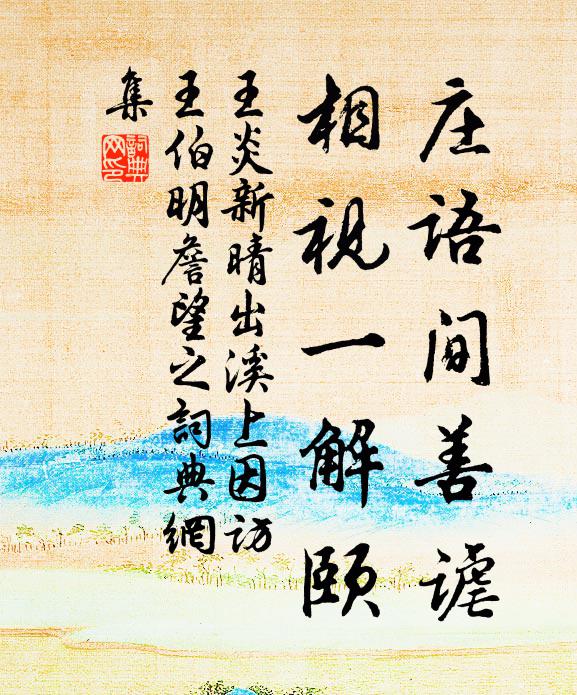 庄语间善谑
相视一解颐
王炎新晴出溪上因访
王伯明詹望之詞典網
集
詞典
网印